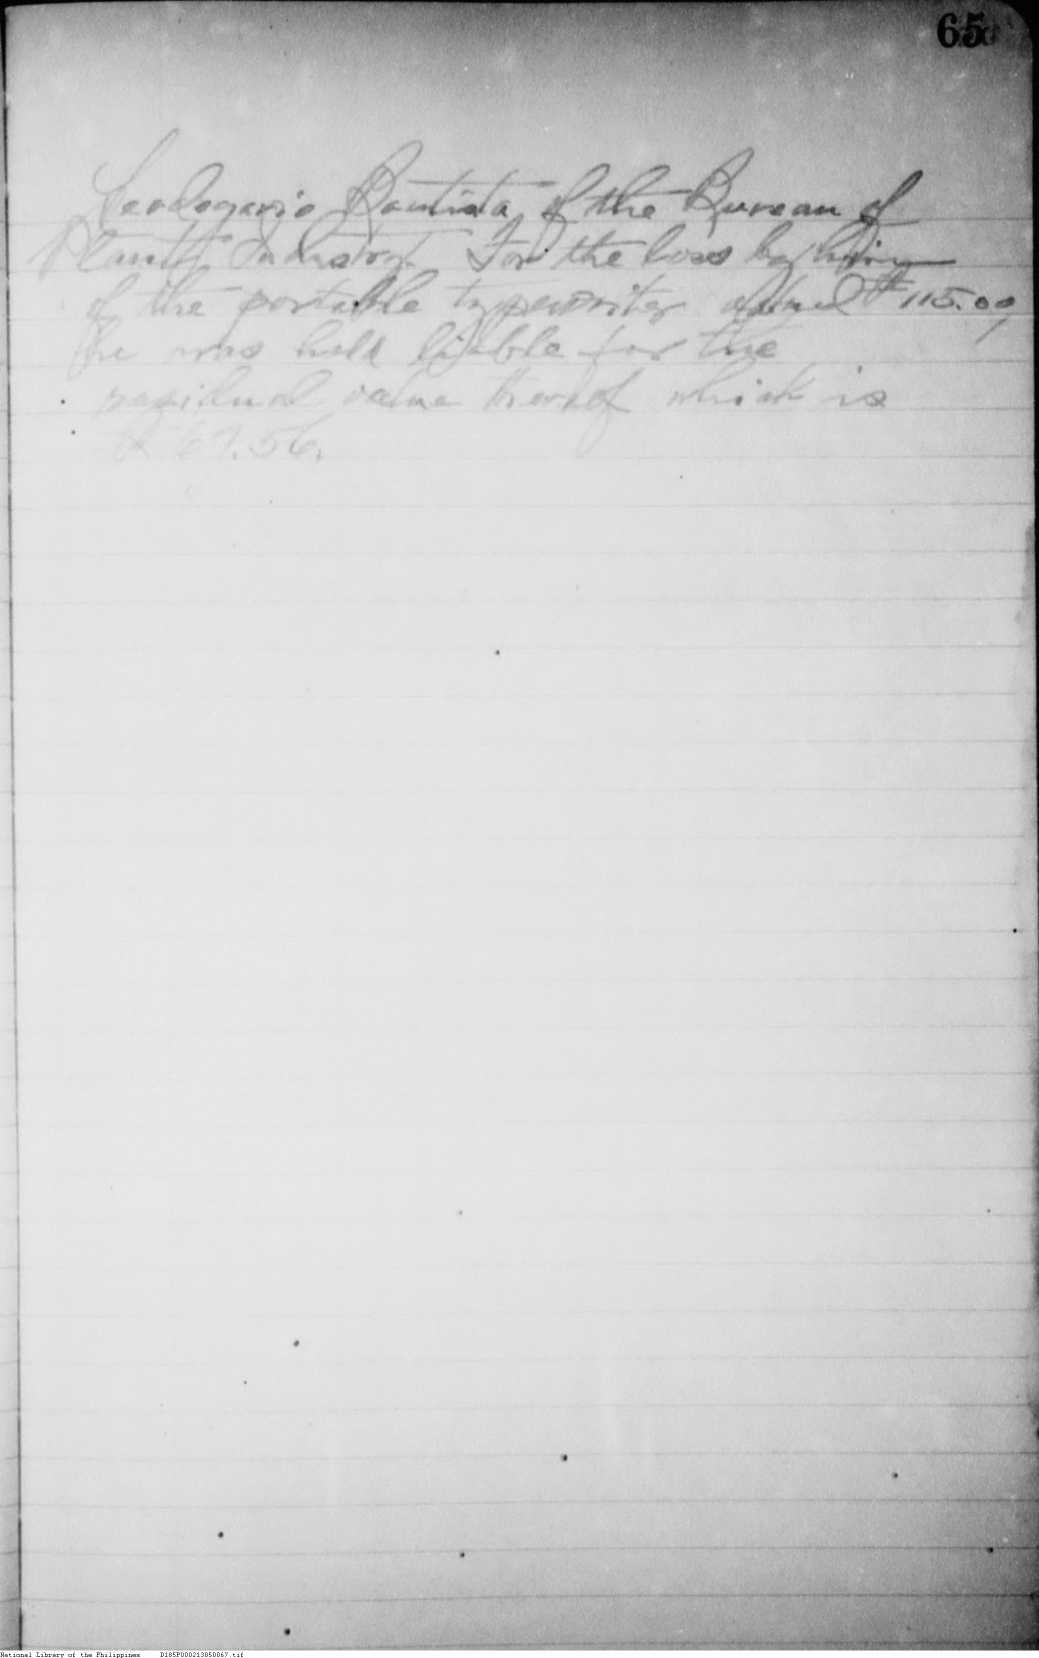 65
Leodegario Bautista, of the Bureau of
Plant Industry. For the loss by him
of the portable typewriter valued ₱115.00,
he was held liable for the
residual value thereof which is
₱67.56.
National Library of the Philippines D185P000213850067.tif